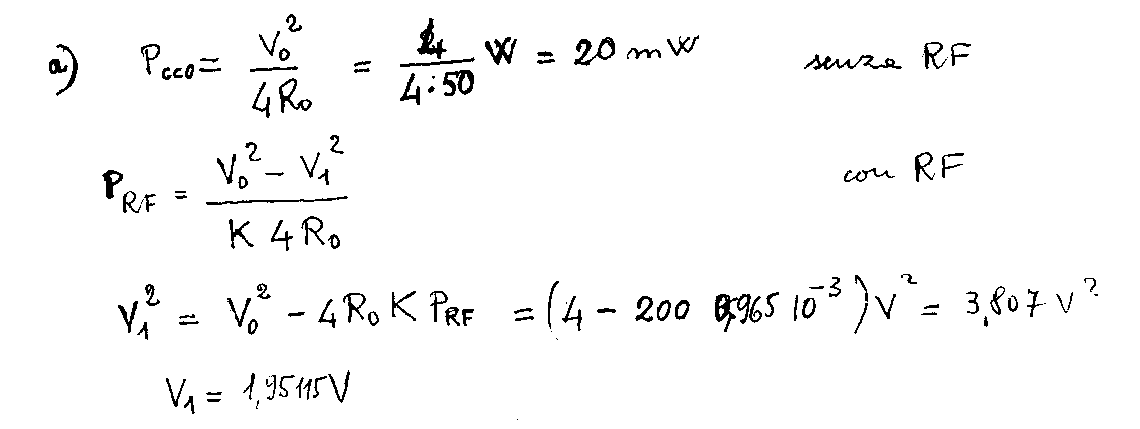 a) P_CC0 = V_0^2 / 4R_0 = 4 / 4·50 W = 20 mW senza RF
P_RF = V_0^2 - V_1^2 / K 4 R_0 con RF
V_1^2 = V_0^2 - 4 R_0 K P_RF = (4 - 200 0,965 10^-3) V^2 = 3,807 V^2
V_1 = 1,95115 V